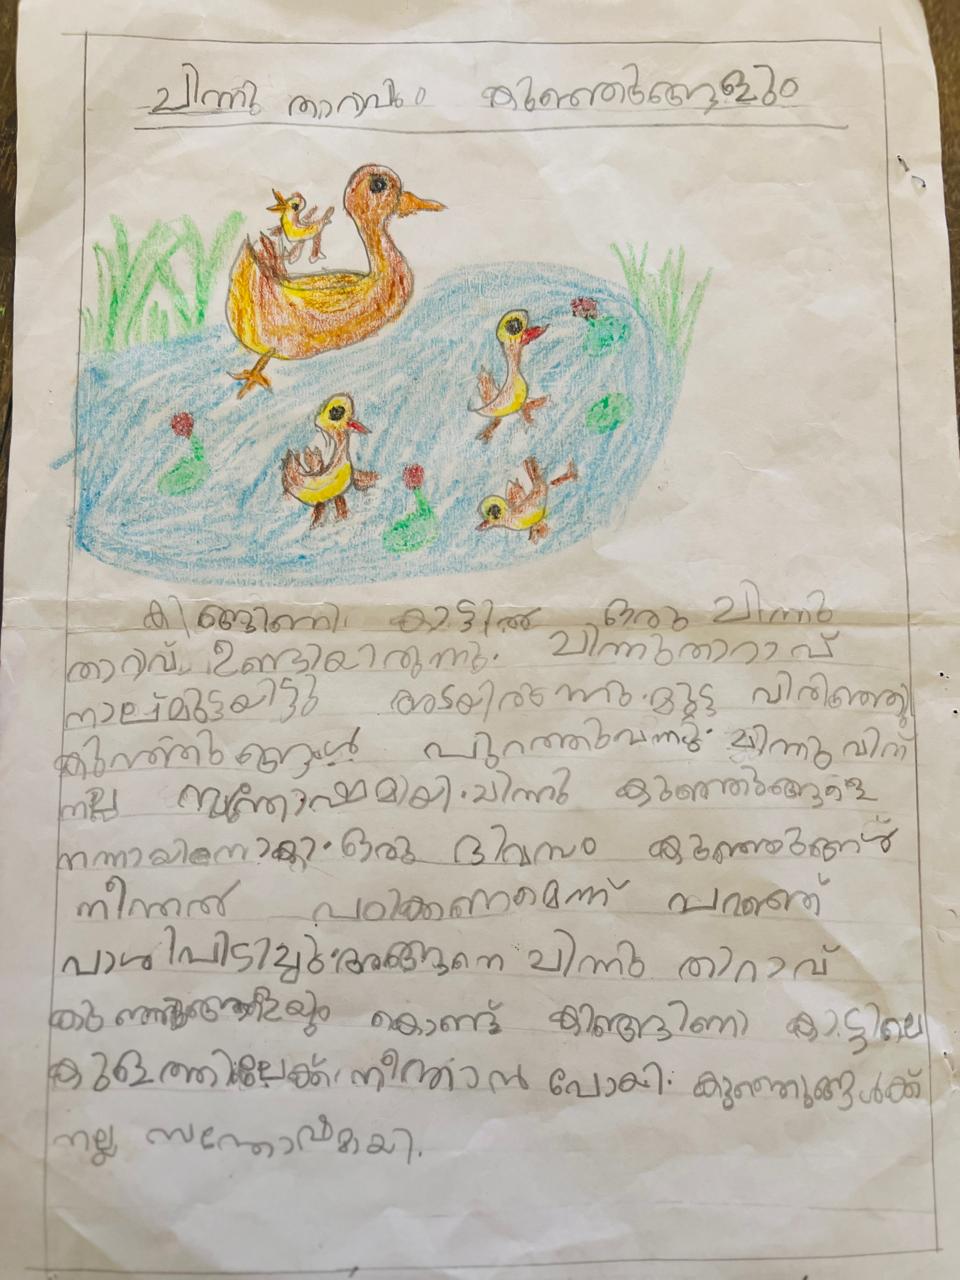 ചിന്നു താറാവും കുഞ്ഞുങ്ങളും
കിങ്ങിണി കാട്ടിൽ ഒരു ചിന്നു
താറാവ് ഉണ്ടായിരുന്നു. ചിന്നുതാറാവ്
നാല് മുട്ടയിട്ടു അടയിരുന്നു. മുട്ട വിരിഞ്ഞു
കുഞ്ഞുങ്ങൾ പുറത്തുവന്നു. ചിന്നുവിന്
നല്ല സന്തോഷമായി. ചിന്നു കുഞ്ഞുങ്ങളെ
നന്നായിനോക്കി. ഒരു ദിവസം കുഞ്ഞുങ്ങൾ
നീന്തൽ പഠിക്കണമെന്ന് പറഞ്ഞ്
വാശിപിടിച്ചു. അങ്ങനെ ചിന്നു താറാവ്
കുഞ്ഞുങ്ങളേയും കൊണ്ട് കിങ്ങിണി കാട്ടിലെ
കുളത്തിലേക്ക് നീന്താൻ പോയി. കുഞ്ഞുങ്ങൾക്ക്
നല്ല സന്തോഷമായി.